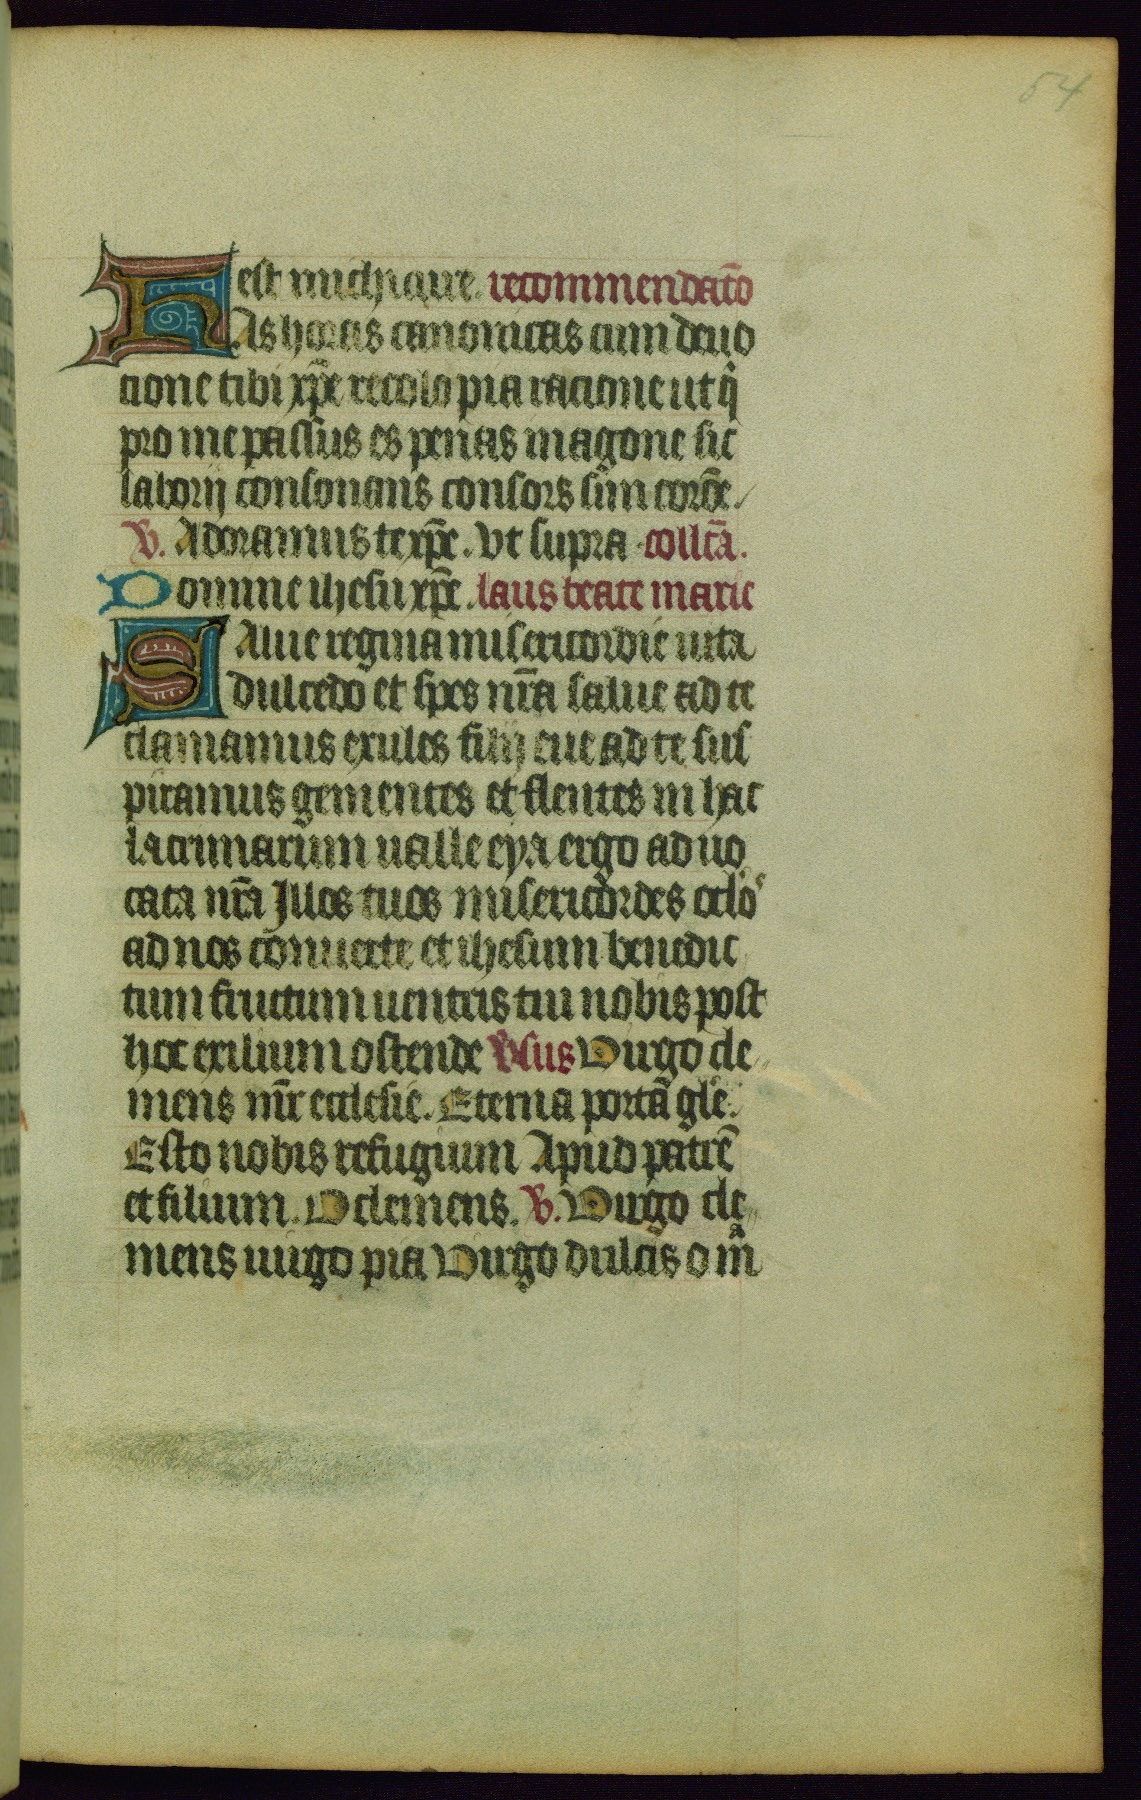 54
est michi cure. recommendat̄o
HAs horas canonicas cum deuo
cione tibi xp̄e recolo pia racione ut q̄
pro me passus es penas in agone sic
laborij consonans consors sim corōe
V. Adoramus te xp̄e. vt supra. collc̄a.
Domine ihesu xp̄e. laus beate marie
SAlue regina misericordie uita
dulcedo et spes nr̄a salue ad te
clamamus exules filij eue ad te sus
piramus gementes et flentes in hac
lacrimarum ualle eya ergo aduo
cata nr̄a Illos tuos misericordes oclo
ad nos conuerte et ihesum benedic
tum fructum uentris tui nobis post
hoc exilium ostende Vsus Virgo cle
mens mr̄ ecclesie. Eterna porta gl̄e.
Esto nobis refugium Apud patrē
et filium. O clemens. V. Virgo cle
mens uirgo pia Virgo dulcis o m̄a